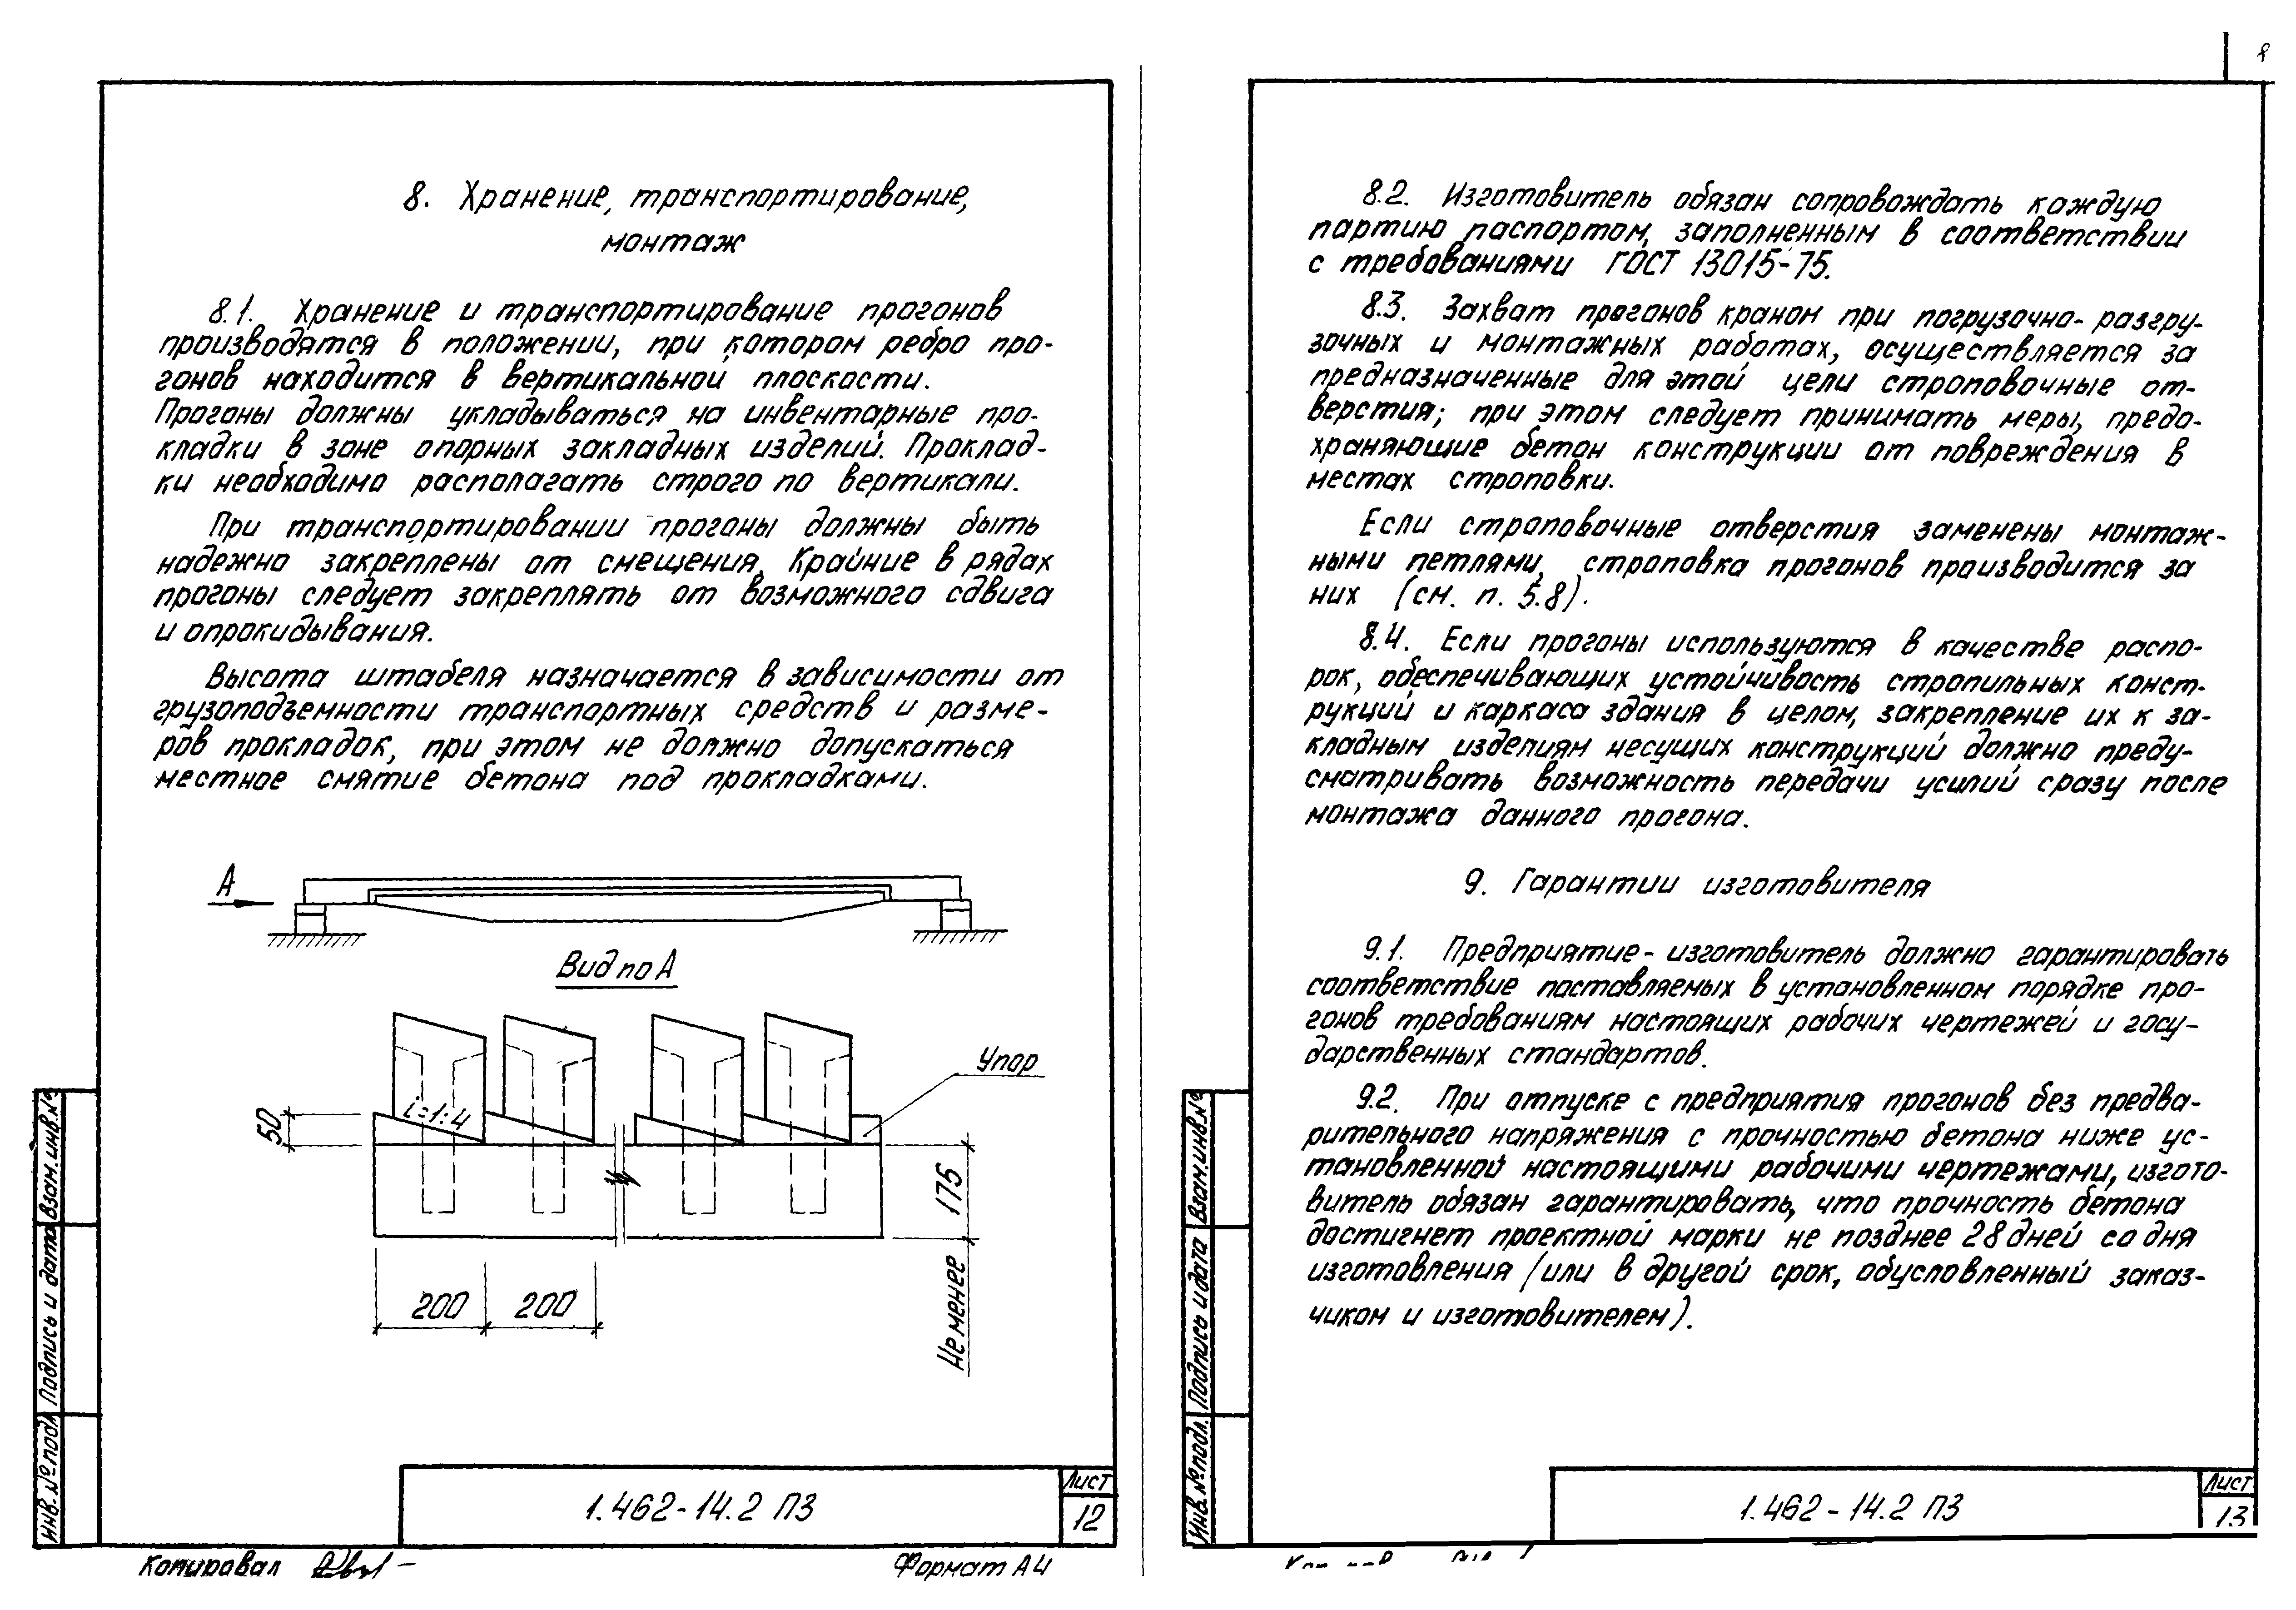 8. Хранение, транспортирование,
монтаж
8.1. Хранение и транспортирование прогонов
производятся в положении, при котором ребро про-
гонов находится в вертикальной плоскости.
Прогоны должны укладываться на инвентарные про-
кладки в зоне опорных закладных изделий. Проклад-
ки необходимо располагать строго по вертикали.
При транспортировании прогоны должны быть
надежно закреплены от смещения. Крайние в рядах
прогоны следует закреплять от возможного сдвига
и опрокидывания.
Высота штабеля назначается в зависимости от
грузоподъемности транспортных средств и разме-
ров прокладок, при этом не должно допускаться
местное смятие бетона под прокладками.
А
Вид по А
Упор
i=1:4
50
175
Не менее
200
200
Инв. № подл.
Подпись и дата
Взам. инв. №
1.462-14.2 ПЗ
Лист
12
Копировал
Формат А4
8
8.2. Изготовитель обязан сопровождать каждую
партию паспортом, заполненным в соответствии
с требованиями ГОСТ 13015-75.
8.3. Захват прогонов краном при погрузочно-разгру-
зочных и монтажных работах, осуществляется за
предназначенные для этой цели строповочные от-
верстия; при этом следует принимать меры, предо-
храняющие бетон конструкции от повреждения в
местах строповки.
Если строповочные отверстия заменены монтаж-
ными петлями, строповка прогонов производится за
них (см. п. 5.8).
8.4. Если прогоны используются в качестве распо-
рок, обеспечивающих устойчивость стропильных конст-
рукций и каркаса здания в целом, закрепление их к за-
кладным изделиям несущих конструкций должно преду-
сматривать возможность передачи усилий сразу после
монтажа данного прогона.
9. Гарантии изготовителя
9.1. Предприятие-изготовитель должно гарантировать
соответствие поставляемых в установленном порядке про-
гонов требованиям настоящих рабочих чертежей и госу-
дарственных стандартов.
9.2. При отпуске с предприятия прогонов без предва-
рительного напряжения с прочностью бетона ниже ус-
тановленной настоящими рабочими чертежами, изгото-
витель обязан гарантировать, что прочность бетона
достигнет проектной марки не позднее 28 дней со дня
изготовления (или в другой срок, обусловленный заказ-
чиком и изготовителем).
Инв. № подл.
Подпись и дата
Взам. инв. №
1.462-14.2 ПЗ
Лист
13